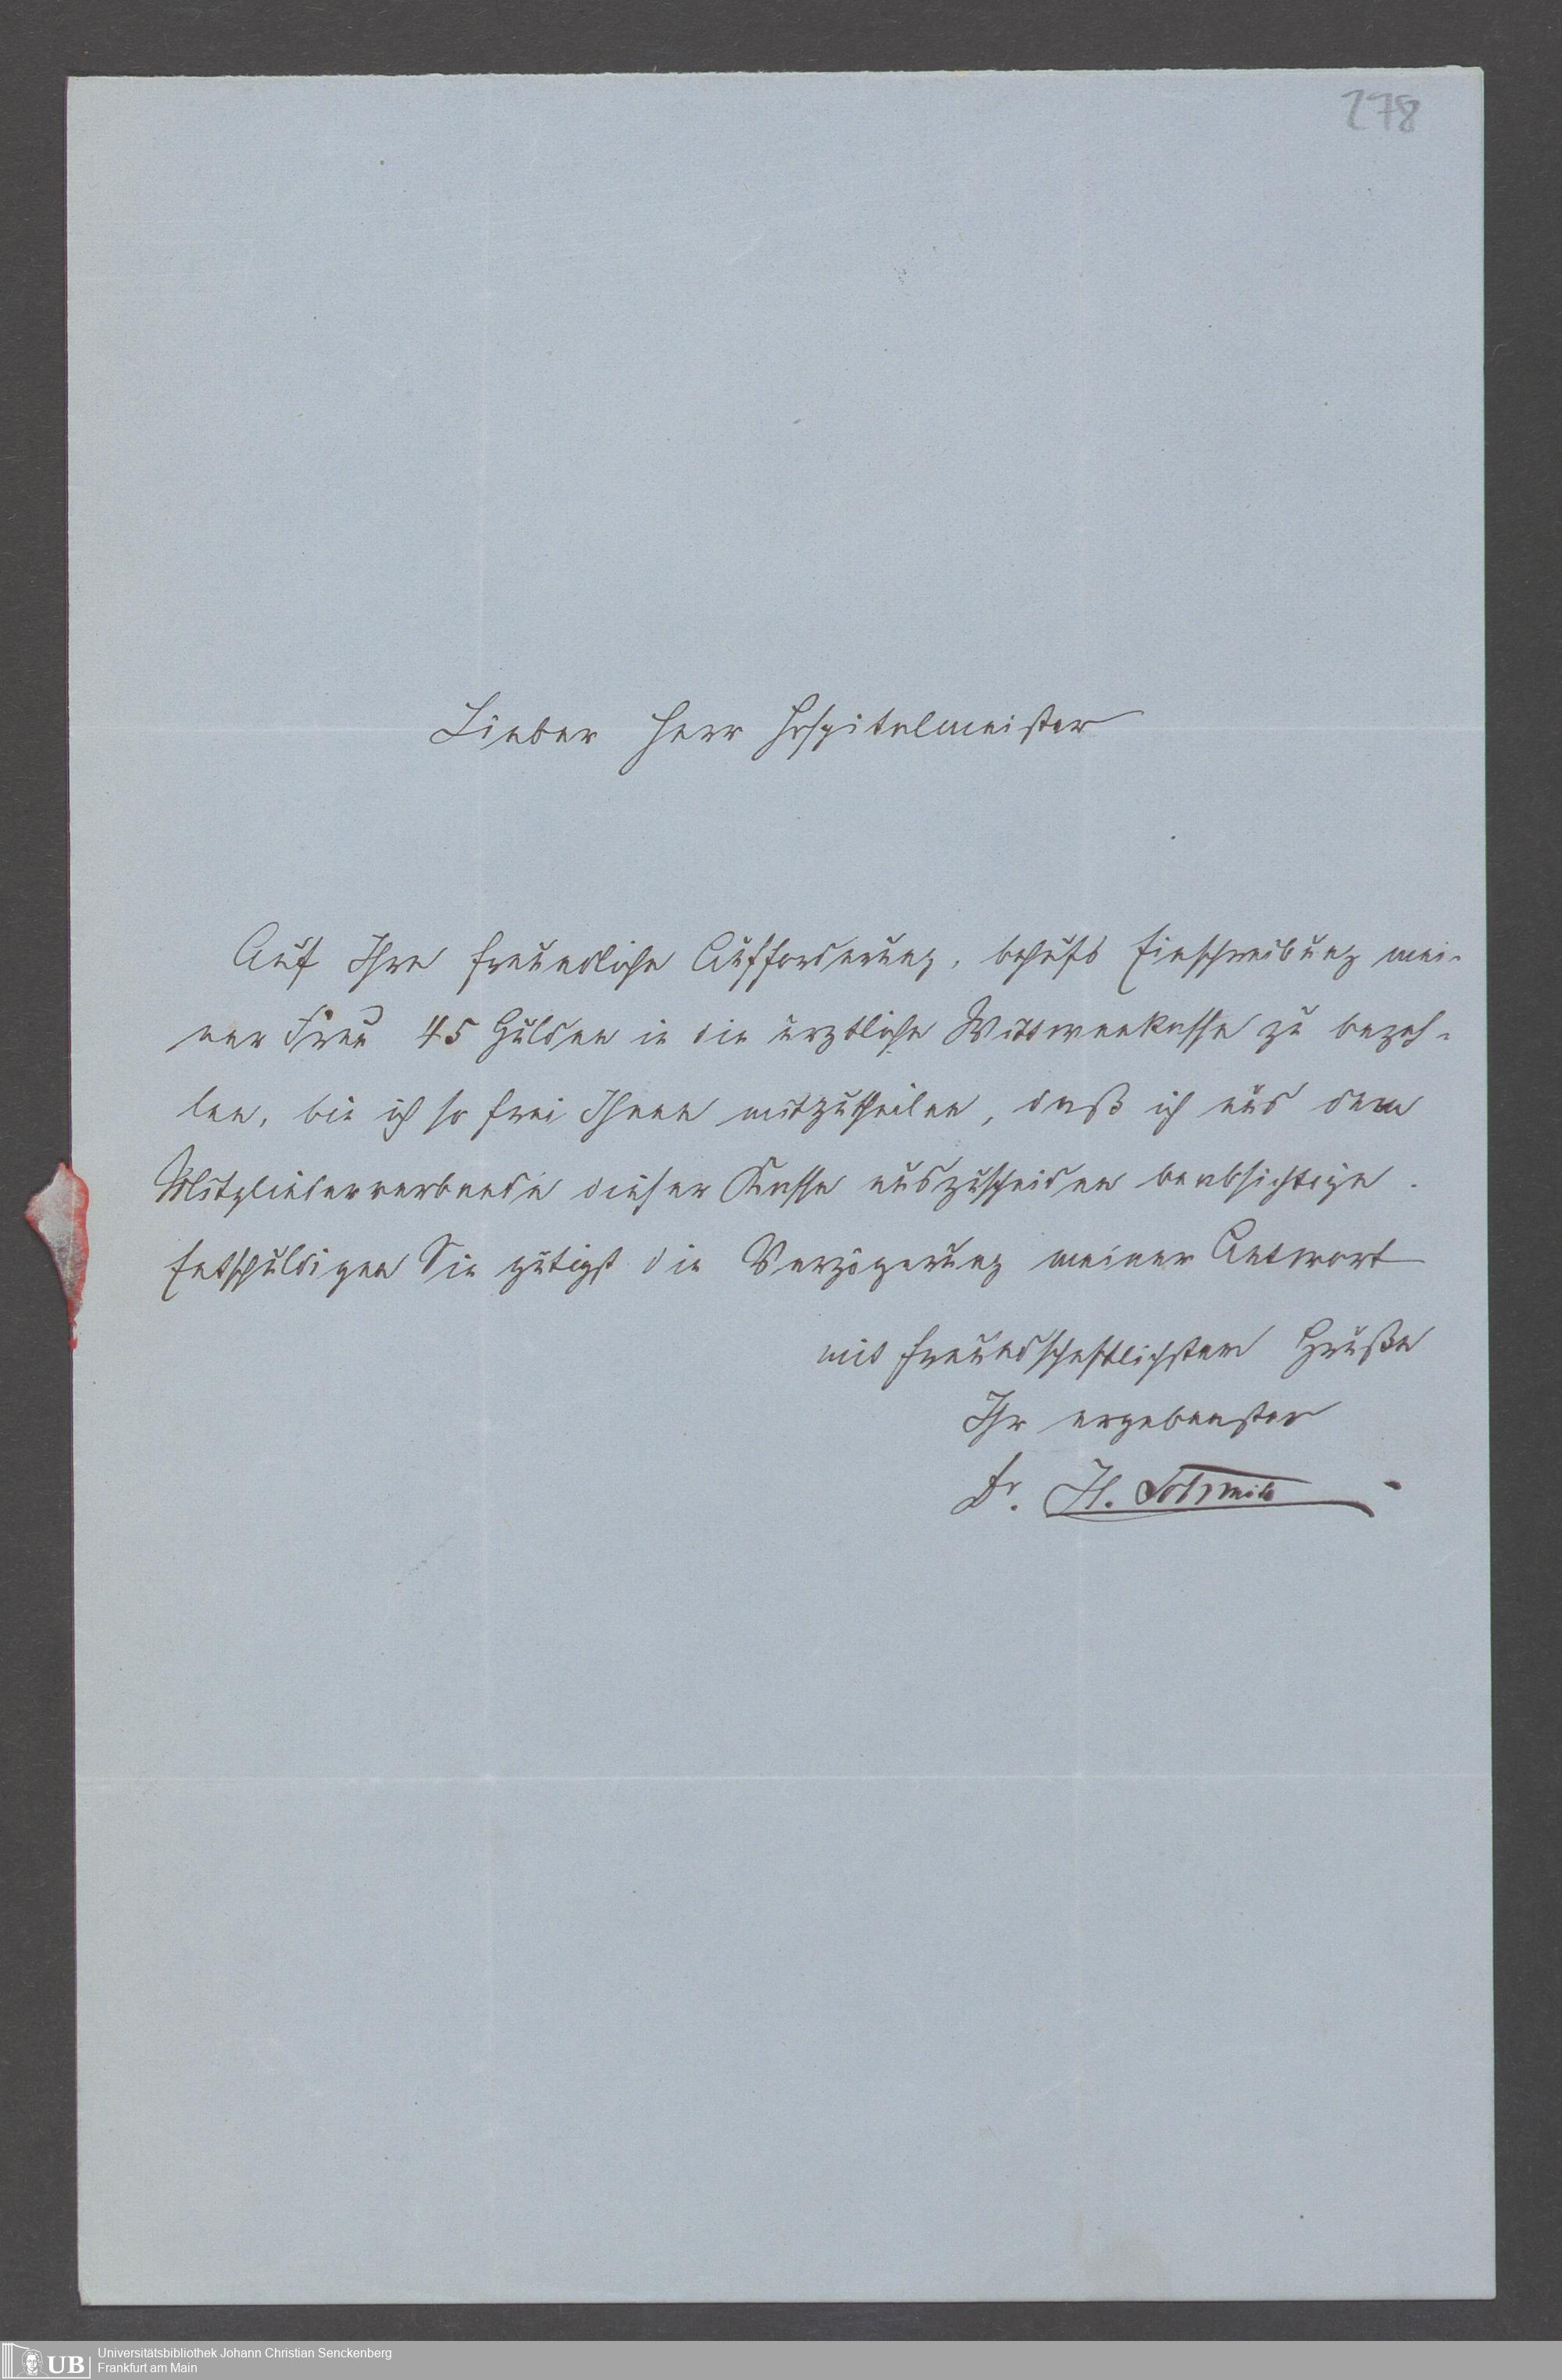 278
Lieber Herr Hospitalmeister
Auf Ihre freundliche Aufforderung, behufs Einschreibung mei-
ner Frau 45 Gulden in die ärztliche Wittwenkasse zu bezah-
len, bin ich so frei Ihnen mitzutheilen, daß ich aus dem
Mitgliederverbande dieser Kasse auszuscheiden beabsichtige.
Entschuldigen Sie gütigst die Verzögerung meiner Antwort
mit freundschaftlichstem Gruße
Ihr ergebenster
Dr. H. Schmidt
UB
Universitätsbibliothek Johann Christian Senckenberg
Frankfurt am Main